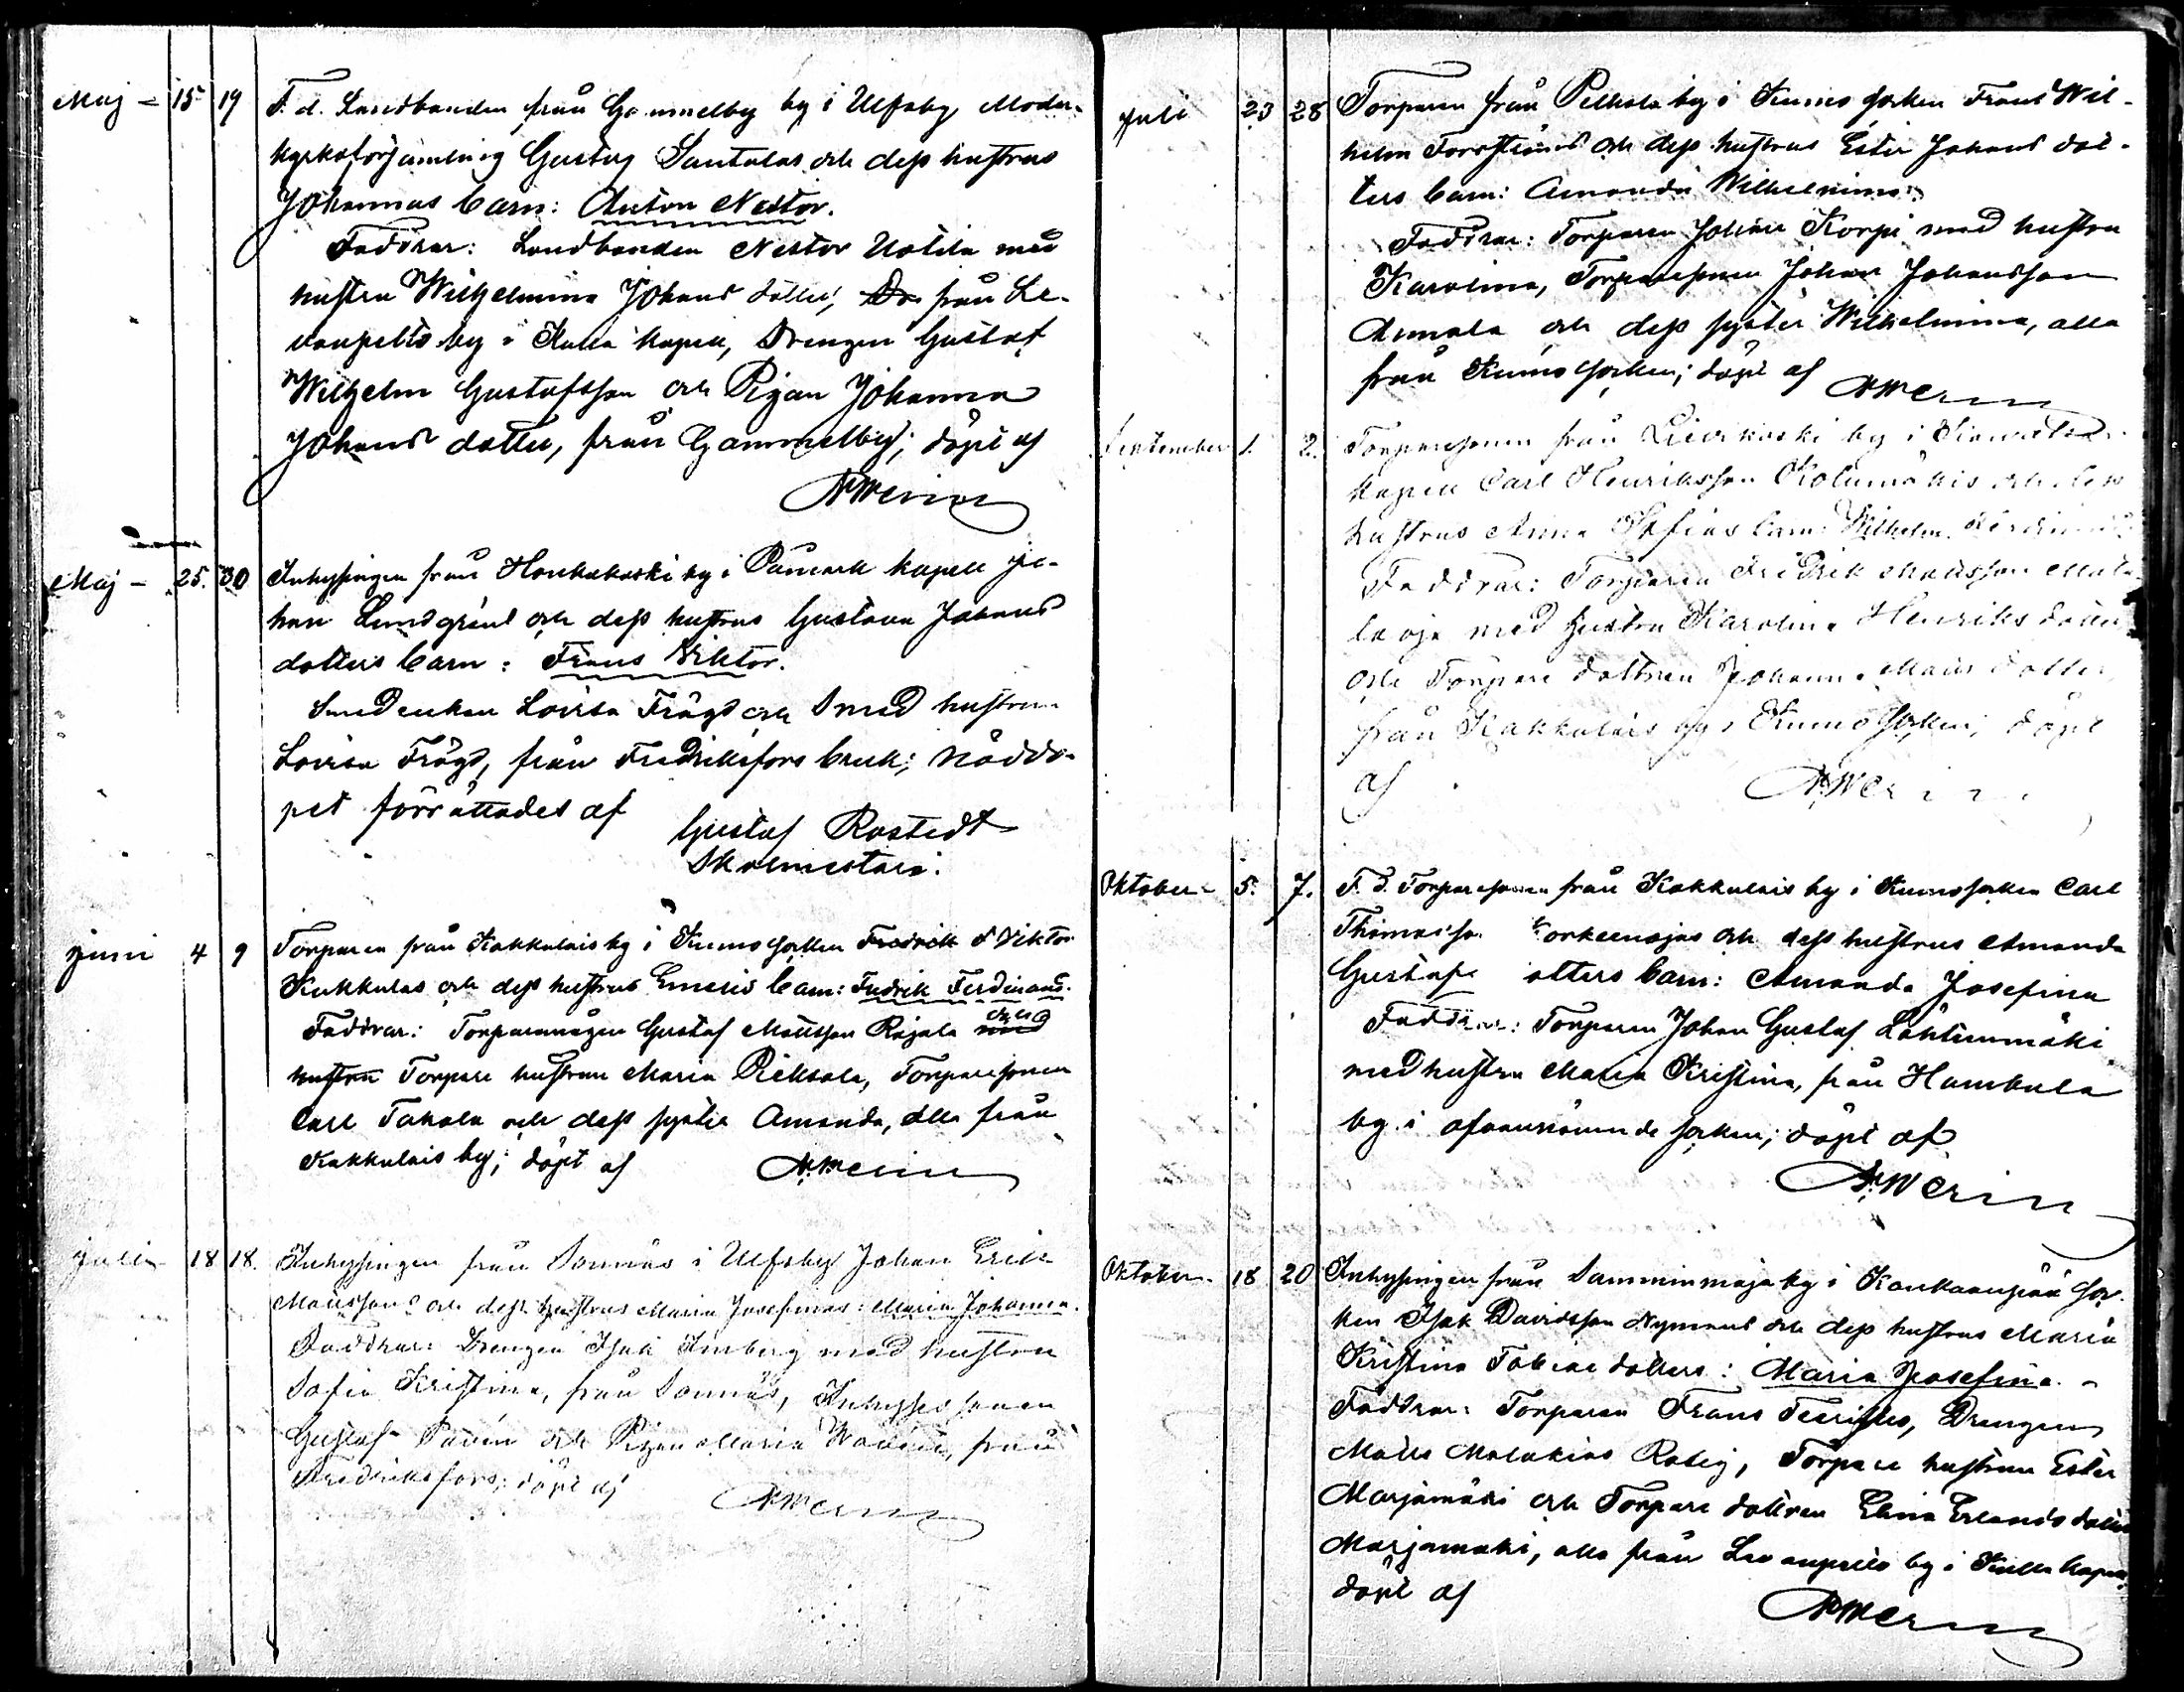 Maj - 15 19 F. d. Landbonden från Gammelby by i Ulfsby Moder-
kyrkoförsamling Gustaf Santalas och dess hustrus
Johannas barn: Anton Nestor.
Faddrar: Landbonden Nestor Uotila med
hustru Wilhelmina Johans dotter, från Le-
vanpelto by i Kulla kapell, Drengen Gustaf
Wilhelm Gustafsson och Pigan Johanna
Johans dotter, från Gammelby; döpt af
Maj - 25. 30 Inhysingen från Honkakoski by i Påmark kapell Jo-
han Lundgréns och dess hustrus Gustava Johans
dotters barn: Frans Viktor.
Smedenkan Lovisa Frögd och Smed hustrun
Lovisa Frögd, från Fredriksfors bruk; nöddo-
pet förrättades af
Gustaf Rostedt
Skolmestare.
Juni 4 9 Torparen från Kakkulais by i Kumo socken Fredrik Viktor
Kukkulas och dess hustrus barn: Fredrik Ferdinand.
Faddrar: Torparemågen Gustaf Mattsson Rajala med
hustrun Torpare hustrun Maria Pietsala, Torparesonen
Carl Takala och dess syster Amanda, alla från
Kakkulais by; döpt af
Juli 18 18. Inhysingen från Sonnäs i Ulfsby Johan Erik
Mattssons och dess hustrus Maria Josefinas: Maria Johanna.
Faddrar: Drengen Isak Imberg med hustru
Sofia Kristina, från Sonnäs, Inhyses sonen
Gustaf och Pigan Maria från
Fredriksfors; döpt af
Juli 23 28 Torparen från Pelkola by i Kumo socken Frans Wil-
helm och dess hustrus Ester Johans dot-
ters barn: Amanda Wilhelmina.
Faddrar: Torparen Johan Korpi med hustru
Karolina, Torparesonen Johan Johansson
Annala och dess syster Wilhelmina, alla
från Kumo socken; döpt af
September 1. 2. Torparesonen från by i
kapell Carl Henriksson Kolumäkis och dess
hustrus Anna Sofias barn: Wilhelm
Faddrar: Torparen Fredrik Mattsson
med hustru Karolina Henriks dotter
och Torpare dottren Johanna Matts dotter
från Kakkulais by i Kumo socken; döpt
af
Oktober - 5. 7. F. d. Torparesonen från Kakkulais by i Kumo socken Carl
och dess hustrus Amanda
barn: Amanda Josefina
Faddrar: Torparen Johan Gustaf Lähteenmäki
med hustru Maria Kristina, från Hambula
by i ofvannämnde socken; döpt af
Oktober. 18 20 Inhysingen från Samminmaja by i Kankaanpää soc-
ken Isak Davidsson Nymans och dess hustrus Maria
Kristina Tobias dotters: Maria Josefina. -
Faddrar: Torparen Frans Drengen
Matts Malakias Rostig, Torpare hustrun Ester
Marjamäki och Torpare dottren Elina Erlands dotter
Marjamäki, alla från Levanpelto by i Kulla kapell;
döpt af